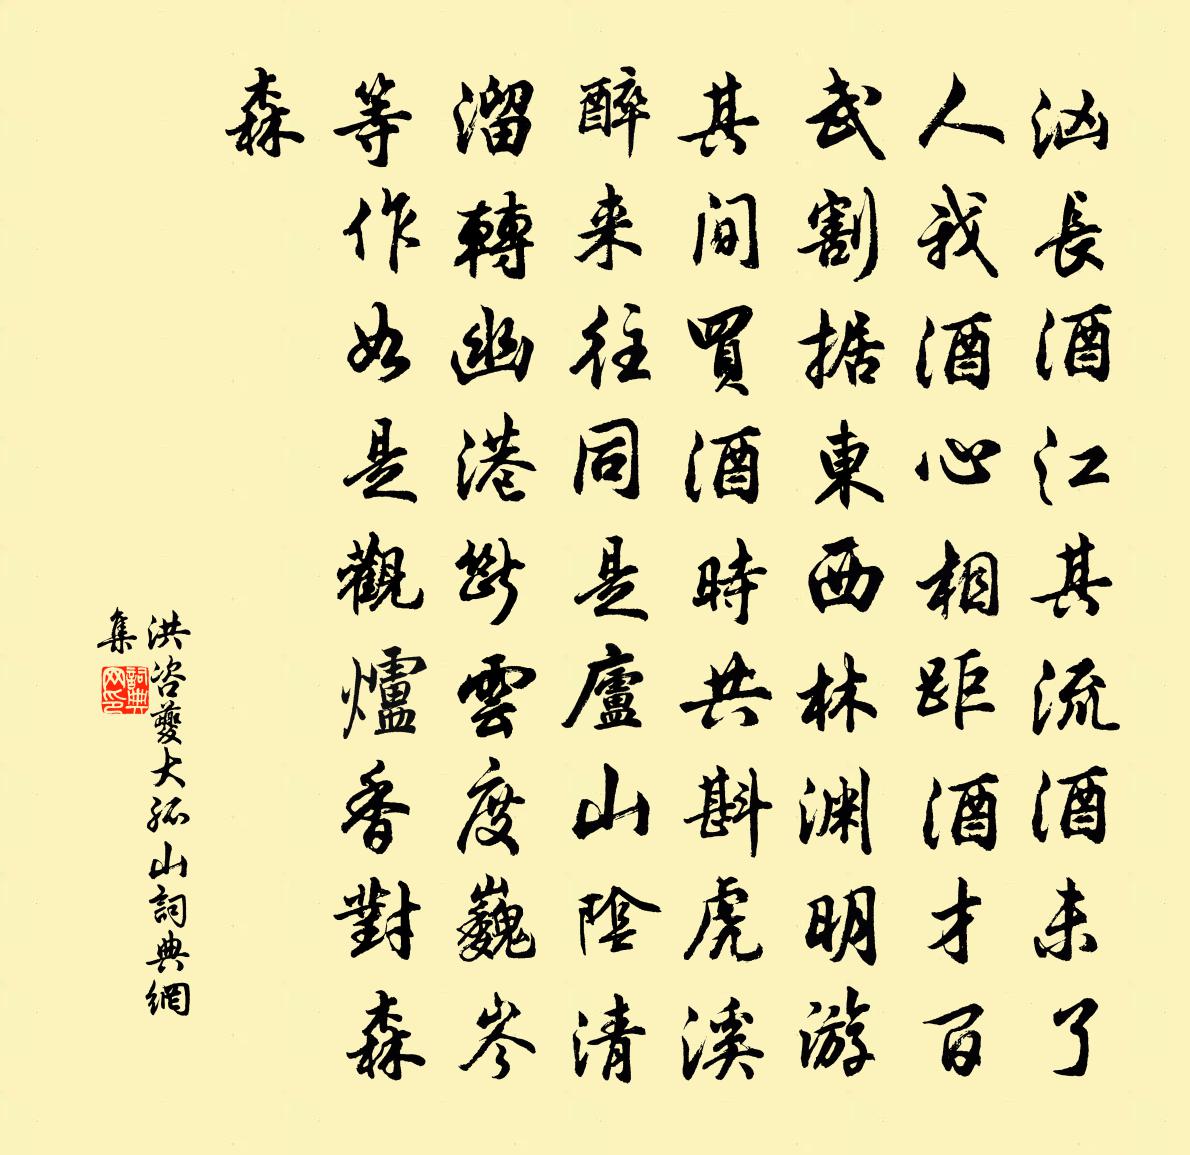 汹長酒江其流酒未了
人我酒心相距酒才百
武割据東西林渊明游
其間買酒時共斟虎溪
醉来往同是廬山陰清
溜轉幽港斷雲度巍岑
等作如是觀爐香對森
森
洪咨夔大孤山詞典網
集
詞典网印